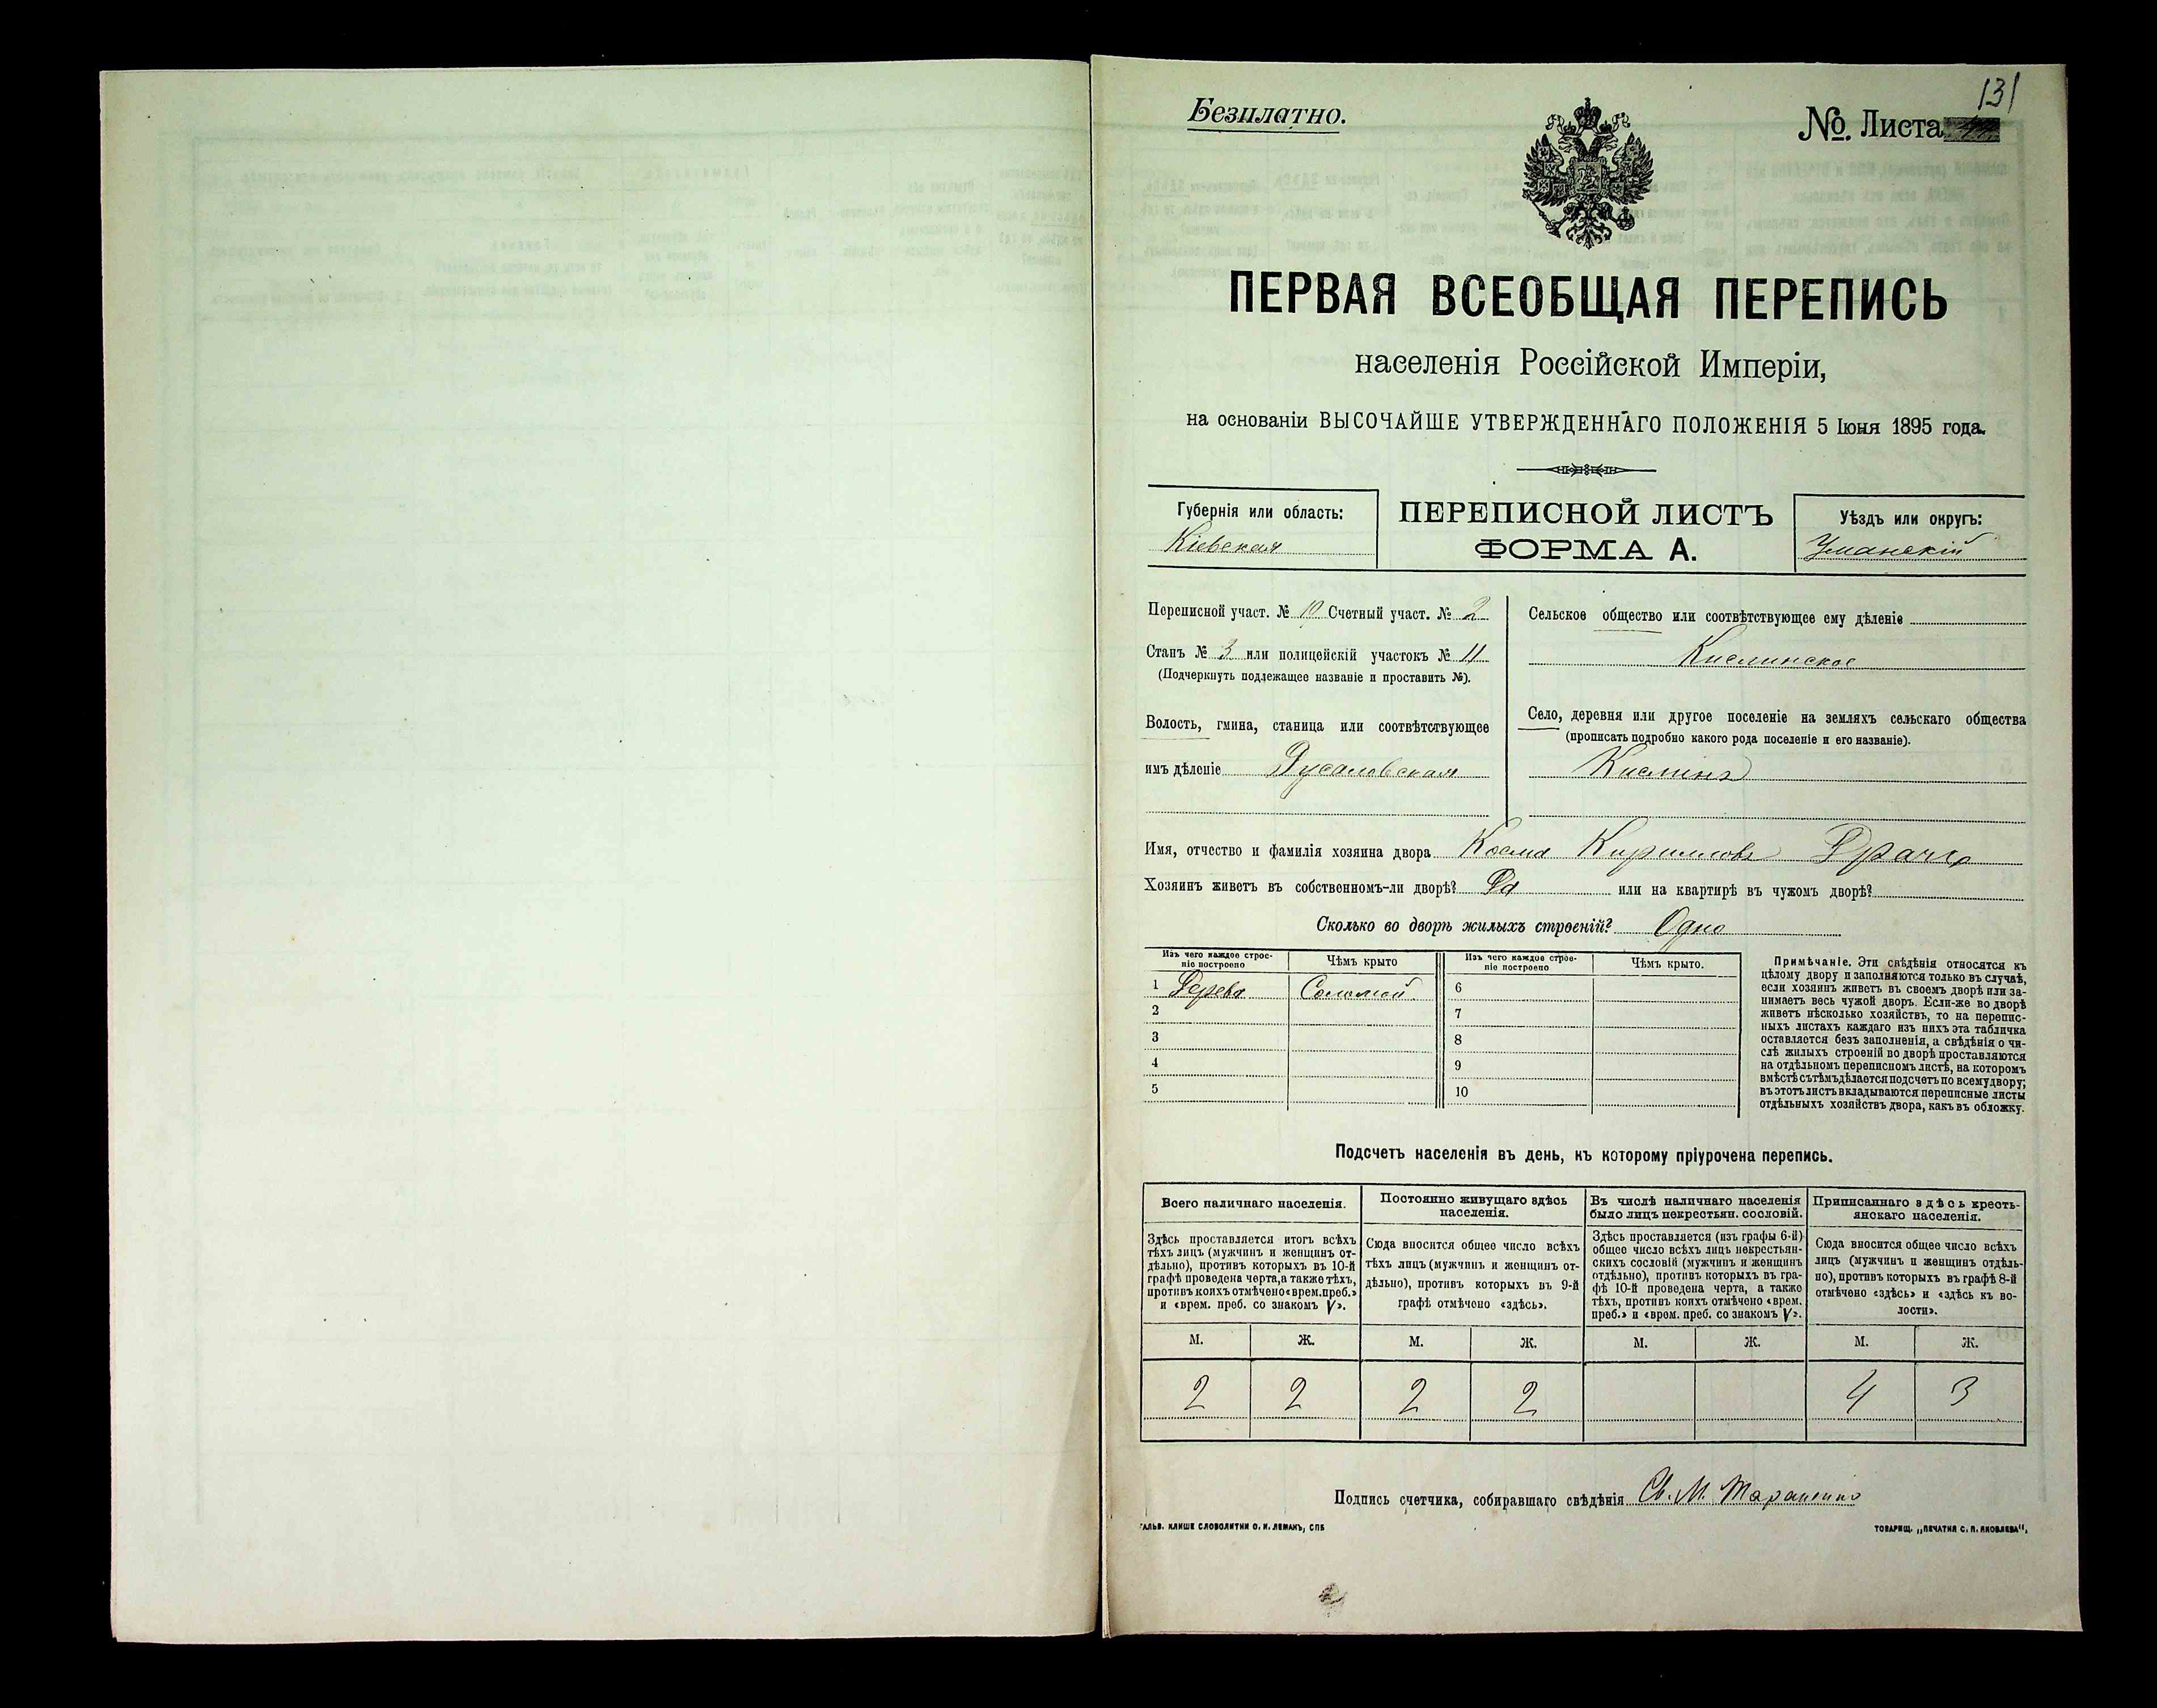 131
Безплатно.
№. Листа
ПЕРВАЯ ВСЕОБЩАЯ ПЕРЕПИСЬ
населенія Россійской Имперіи,
на основаніи ВЫСОЧАЙШЕ УТВЕРЖДЕННАГО ПОЛОЖЕНІЯ 5 Іюня 1895 года.
Губернія или область:
Кіевская
ПЕРЕПИСНОЙ ЛИСТЪ
ФОРМА А.
Уѣздъ или округъ:
Уманскій
Переписной участ. № 19 Счетный участ. № 2
Станъ № 3 или полицейскій участокъ № 11
(Подчеркнуть подлежащее названіе и проставить №).
Волость, гмина, станица или соотвѣтствующее
имъ дѣленіе Русаловская
Сельское общество или соотвѣтствующее ему дѣленіе
Кислинское
Село, деревня или другое поселеніе на земляхъ сельскаго общества
(прописать подробно какого рода поселеніе и его названіе).
Кислинъ
Имя, отчество и фамилія хозяина двора Косма Кириловъ Драчъ
Хозяинъ живетъ въ собственномъ-ли дворѣ? Да или на квартирѣ въ чужомъ дворѣ?
Сколько во дворѣ жилыхъ строеній? Одно
Изъ чего каждое строе-
ніе построено
Чѣмъ крыто
Изъ чего каждое строе-
ніе построено
Чѣмъ крыто.
1 Дерева Соломой 6
2 7
3 8
4 9
5 10
Примѣчаніе. Эти свѣдѣнія относятся къ
цѣлому двору и заполняются только въ случаѣ,
если хозяинъ живетъ въ своемъ дворѣ или за-
нимаетъ весь чужой дворъ. Если-же во дворѣ
живетъ нѣсколько хозяйствъ, то на перепис-
ныхъ листахъ каждаго изъ нихъ эта табличка
оставляется безъ заполненія, а свѣдѣнія о чи-
слѣ жилыхъ строеній во дворѣ проставляются
на отдѣльномъ переписномъ листѣ, на которомъ
вмѣстѣ съ тѣмъ дѣлается подсчетъ по всему двору;
въ этотъ листъ вкладываются переписные листы
отдѣльныхъ хозяйствъ двора, какъ въ обложку.
Подсчетъ населенія въ день, къ которому пріурочена перепись.
Всего наличнаго населенія.
Здѣсь проставляется итогъ всѣхъ
тѣхъ лицъ (мужчинъ и женщинъ от-
дѣльно), противъ которыхъ въ 10-й
графѣ проведена черта, а также тѣхъ,
противъ коихъ отмѣчено «врем. преб.»
и «врем. преб. со знакомъ V».
Постоянно живущаго здѣсь
населенія.
Сюда вносится общее число всѣхъ
тѣхъ лицъ (мужчинъ и женщинъ от-
дѣльно), противъ которыхъ въ 9-й
графѣ отмѣчено «здѣсь».
Въ числѣ наличнаго населенія
было лицъ некрестьян. сословій.
Здѣсь проставляется (изъ графы 6-й)
общее число всѣхъ лицъ некрестьян-
скихъ сословій (мужчинъ и женщинъ
отдѣльно), противъ которыхъ въ гра-
фѣ 10-й проведена черта, а также
тѣхъ, противъ коихъ отмѣчено «врем.
преб.» и «врем. преб. со знакомъ V».
Приписаннаго здѣсь кресть-
янскаго населенія.
Сюда вносится общее число всѣхъ
лицъ (мужчинъ и женщинъ отдѣль-
но), противъ которыхъ въ графѣ 8-й
отмѣчено «здѣсь» и «здѣсь къ во-
лости».
М. Ж. М. Ж. М. Ж. М. Ж.
2 2 2 2 4 3
Подпись счетчика, собиравшаго свѣдѣнія Св. М. Тараненко
ГАЛЬВ. КЛИШЕ СЛОВОЛИТНИ О. И. ЛЕМАНЪ, СПБ
ТОВАРИЩ. „ПЕЧАТНЯ С. П. ЯКОВЛЕВА",